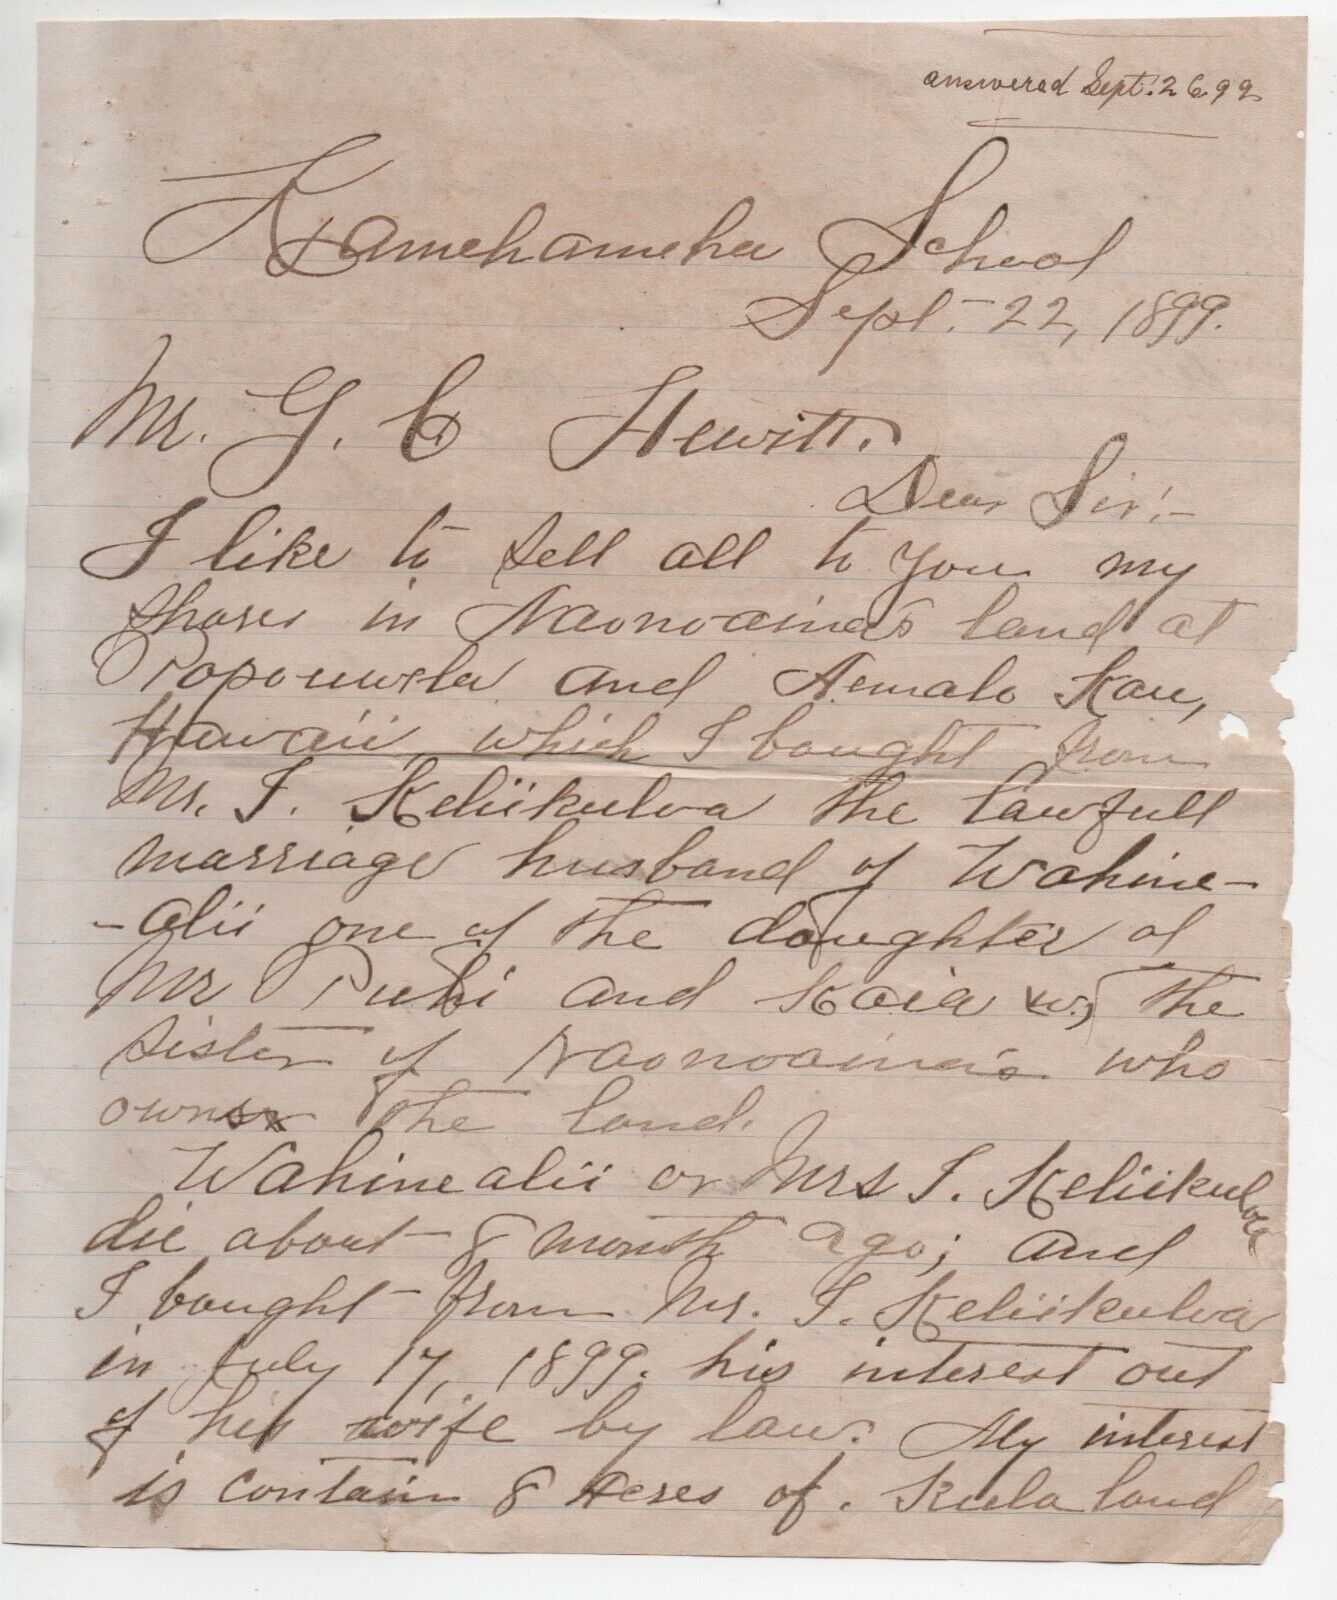 answered Sept. 26 99
Kamehameha School
Sept. 22, 1899.
Mr. G. C Hewitt.
Dear Sir:-
I like to sell all to you my
shares in Naonoaina's land at
and Hemalo Kau,
Hawaii, which I bought from
Mr. J. Keliikuloa the lawfull
marriage husband of Wahine-
-alii one of the doughter of
Mr Puhi and Kaia w, the
sister of Naonoaina's who
owns the land.
Wahinealii or Mrs J. Keliikuloa
die about 8 month ago; and
I bought from Mr. J. Keliikuloa
in July 17, 1899. his interest out
of his wife by law. My interest
is contain 8 acres of. Kula land